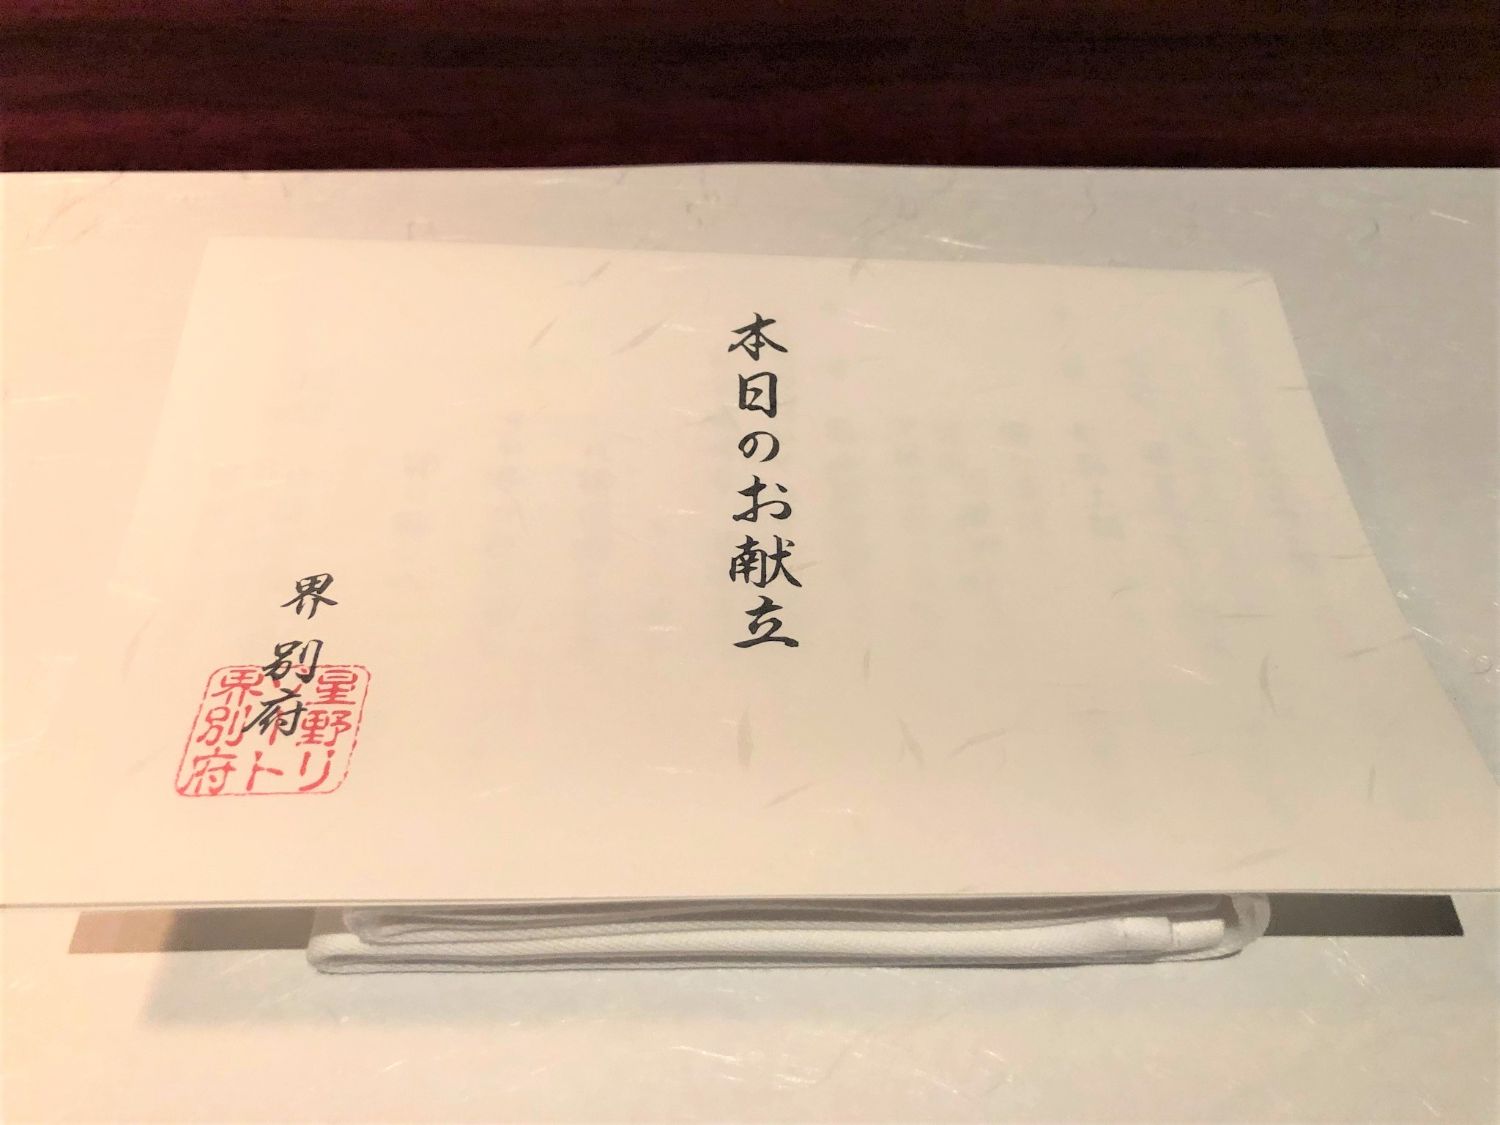 本日のお献立
界 別府
星野リ
ゾート
界別府